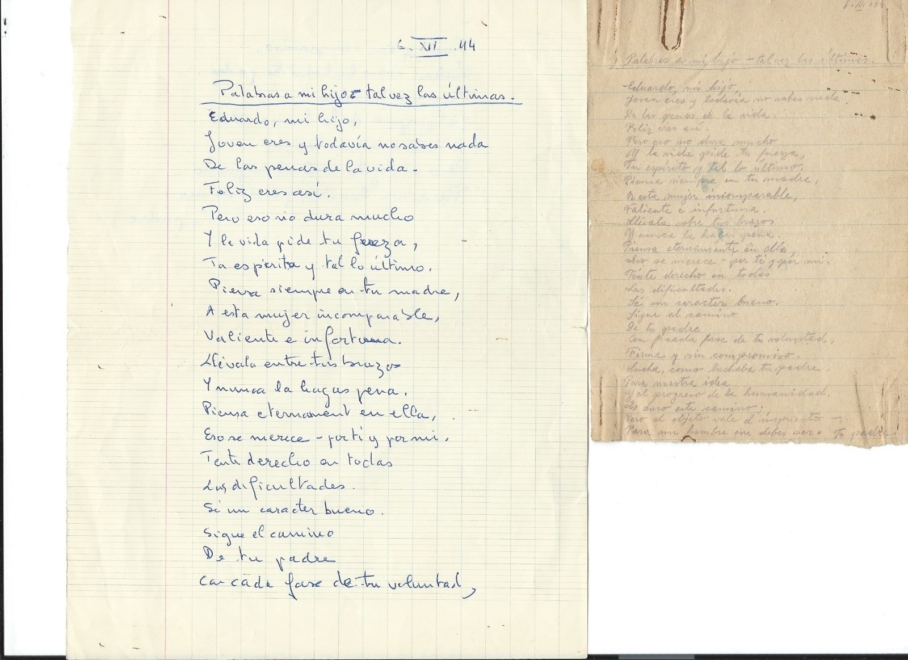 6. XII. 44
Palabras a mi hijo = tal vez las últimas.
Eduardo, mi hijo,
Joven eres y todavía no sabes nada
De las penas de la vida.
Feliz eres así.
Pero eso no dura mucho
Y la vida pide tu fuerza,
Tu espíritu y tal lo último.
Piensa siempre en tu madre,
A esta mujer incomparable,
Valiente e infortuna.
Llévala entre tus brazos
Y nunca la hagas pena.
Piensa eternament en ella,
Eso se merece - por ti y por mi.
Tente derecho en todas
Las dificultades.
Sé un caracter bueno.
Sigue el camino
De tu padre
Con cada fase de tu voluntad,
Palabras a mi hijo - tal vez las últimas.
Eduardo, mi hijo,
Joven eres y todavía no sabes nada
De las penas de la vida.
Feliz eres así.
Pero eso no dura mucho
Y la vida pide tu fuerza,
Tu espíritu y tal lo último.
Piensa siempre en tu madre,
A esta mujer incomparable,
Valiente e infortuna.
Llévala sobre tus brazos
Y nunca la hagas pena.
Piensa eternamente en ella
Eso se merece - por ti y por mi.
Tente derecho en todas
Las dificultades.
Sé un caracter bueno.
Sigue el camino
De tu padre
Con cada fase de tu voluntad,
Firme y sin compromiso.
Lucha, como luchaba tu padre
Para nuestra idea
Y el progreso de la humanidad.
Es duro este camino,
Pero el objeto vale
Para un hombre que debes ser. Tu padre